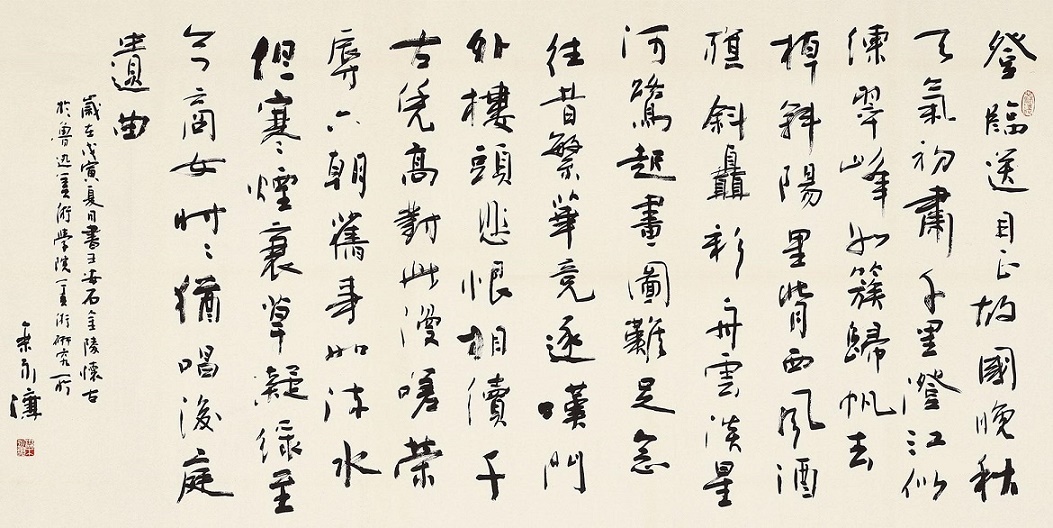 登臨送目正故國晚秋
天氣初肅千里澄江似
練翠峰如簇歸帆去
棹斜陽里背西風酒
旗斜矗彩舟雲淡星
河鷺起畫圖難足念
往昔繁華競逐嘆門
外樓頭悲恨相續千
古凭高對此漫嗟榮
辱六朝舊事如流水
但寒煙衰草凝綠至
今商女時〻猶唱後庭
遺曲
歲在戊寅夏月書王安石金陵懷古
於魯迅美術學院美術研究所